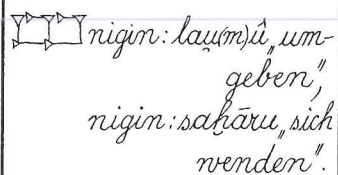 𒆸𒆸 nigin: lau̯(m)û „um-
geben”,
nigin: saḫāru „sich
wenden”.